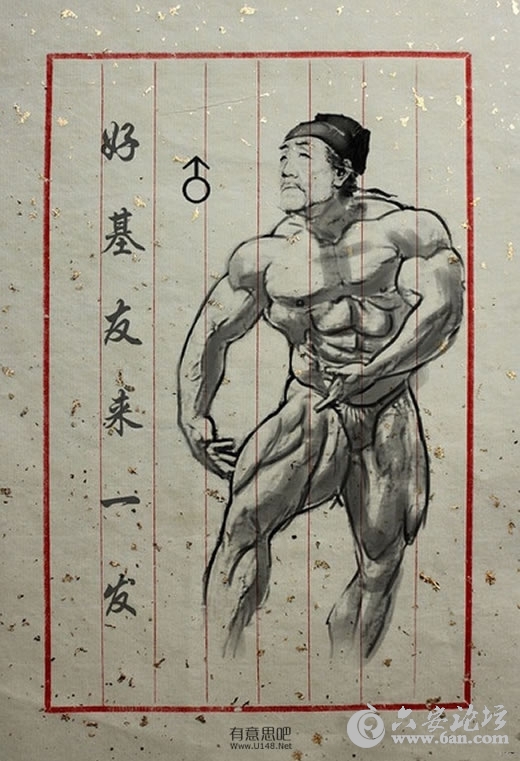 好基友来一发
有意思吧
www.U148.Net
六安论坛
www.6an.com